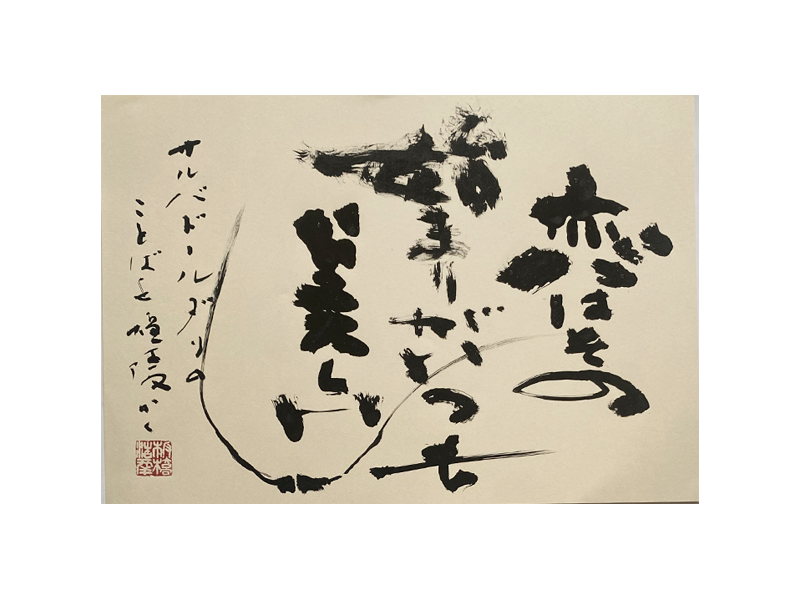 恋はその
始まりがいつも
美しい
サルバドールダリの
ことばを かく
板橋